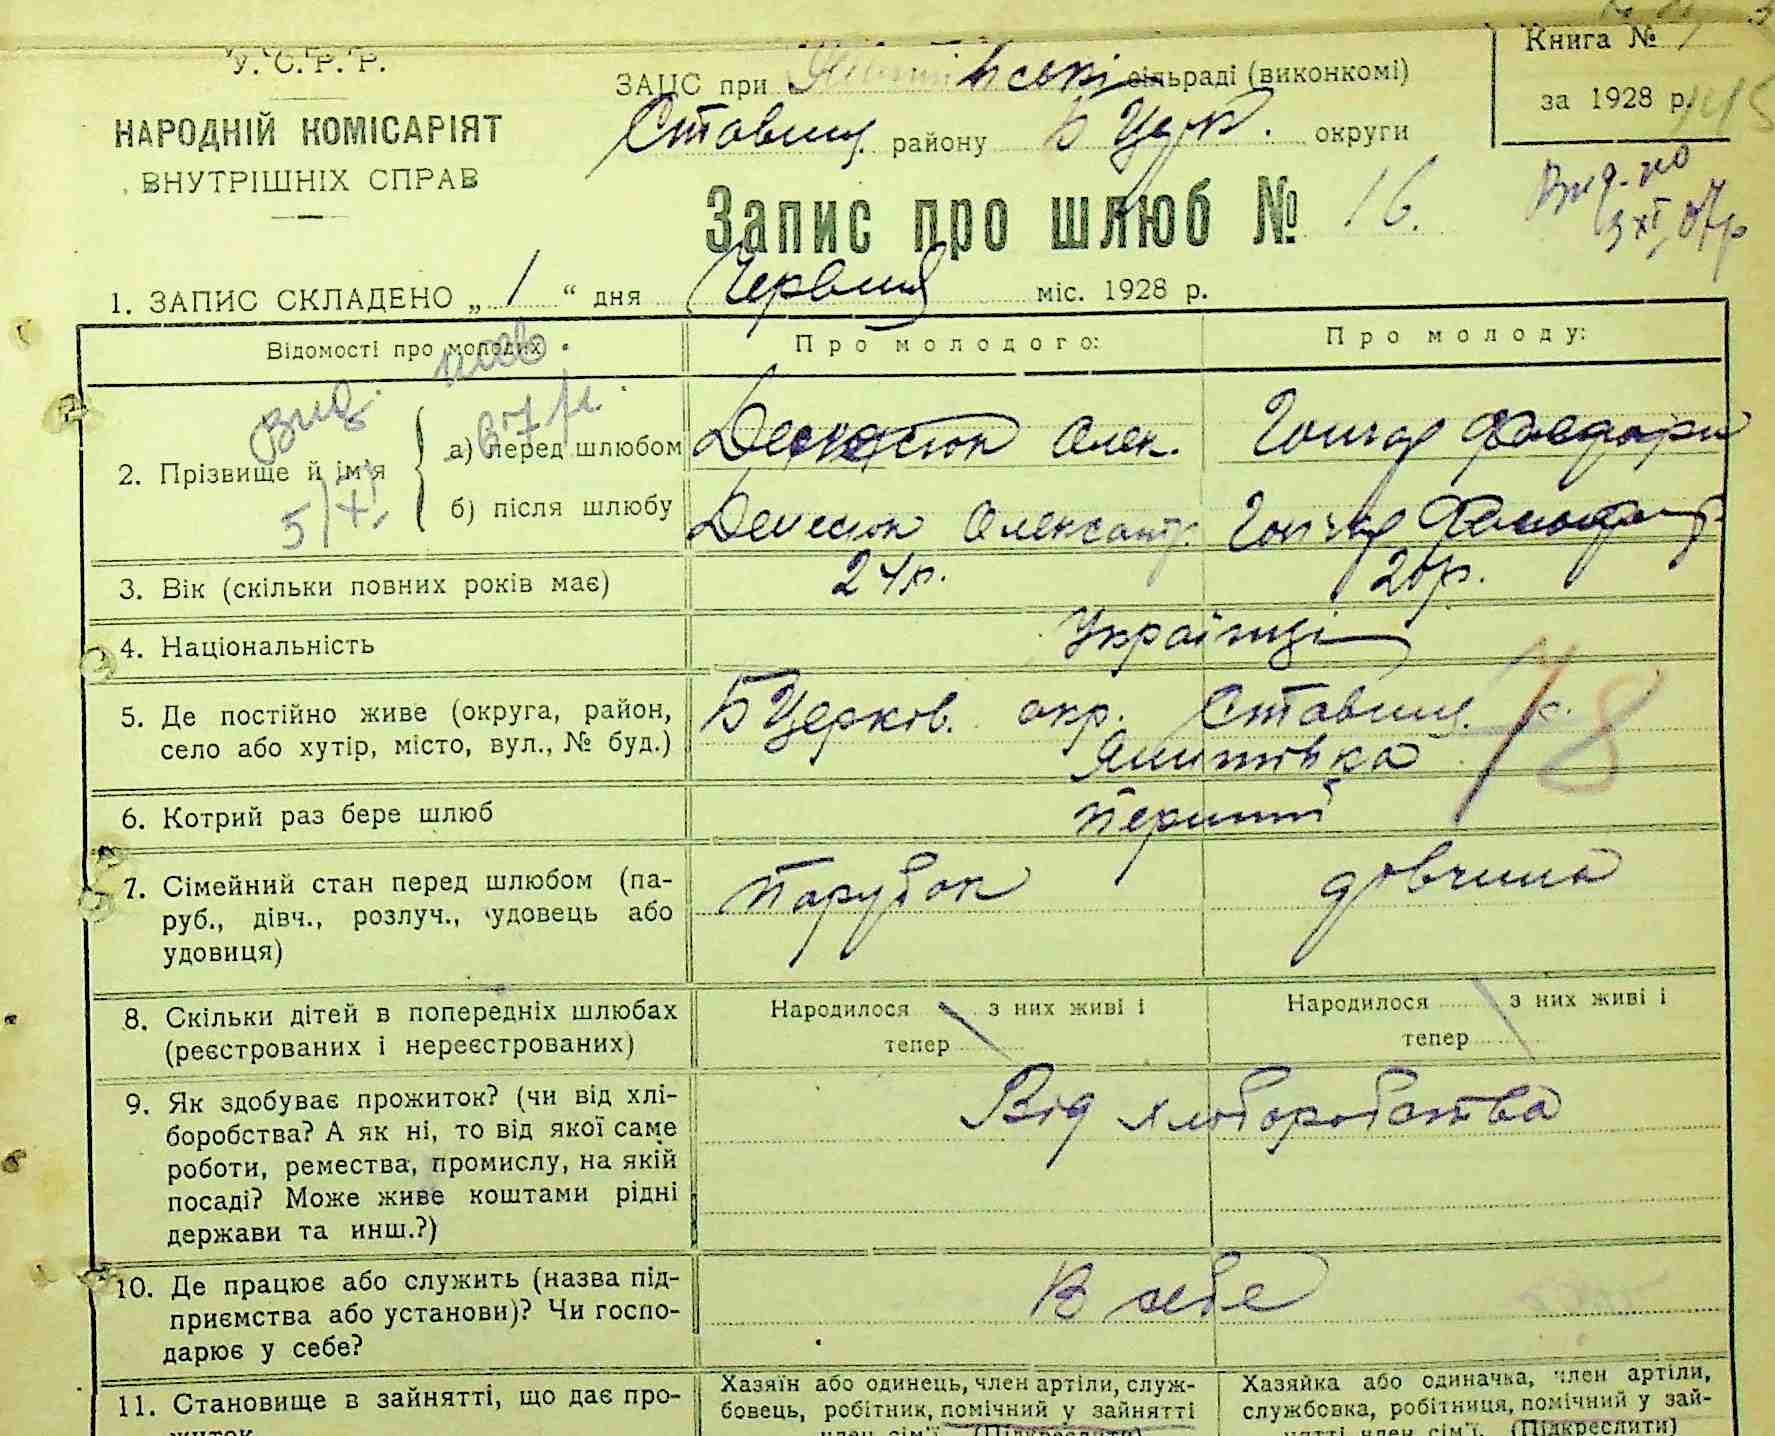 У. С. Р. Р.
НАРОДНІЙ КОМІСАРІЯТ
ВНУТРІШНІХ СПРАВ
ЗАЦС при сільраді (виконкомі)
Ставищ. району Б Церк. округи
Книга №
за 1928 р.
Запис про шлюб № 16.
1. ЗАПИС СКЛАДЕНО „ 1 “ дня Червня міс. 1928 р.
Відомості про молодих
Про молодого:
Про молоду:
2. Прізвище й ім'я
а) перед шлюбом
Олек.
Гончар
б) після шлюбу
Денисюк Олександр.
Гончар
5/XI
3. Вік (скільки повних років має)
24р.
20р.
4. Національність
Українці
5. Де постійно живе (округа, район,
село або хутір, місто, вул., № буд.)
Б Церків. окр. Ставищ. р.
6. Котрий раз бере шлюб
Перший
7. Сімейний стан перед шлюбом (па-
руб., дівч., розлуч., удовець або
удовиця)
Парубок
дівчина
8. Скільки дітей в попередніх шлюбах
(реєстрованих і нереєстрованих)
Народилося з них живі і
тепер
Народилося з них живі і
тепер
9. Як здобуває прожиток? (чи від хлі-
боробства? А як ні, то від якої саме
роботи, ремества, промислу, на якій
посаді? Може живе коштами рідні
держави та инш.?)
Від хлібороботва
10. Де працює або служить (назва під-
приємства або установи)? Чи госпо-
дарює у себе?
В себе
11. Становище в зайнятті, що дає про-
житок
Хазяїн або одинець, член артіли, служ-
бовець, робітник, помічний у зайнятті
член сім'ї. (Підкреслити)
Хазяйка або одиначка, член артіли,
службовка, робітниця, помічний у зай-
нятті член сім'ї. (Підкреслити)